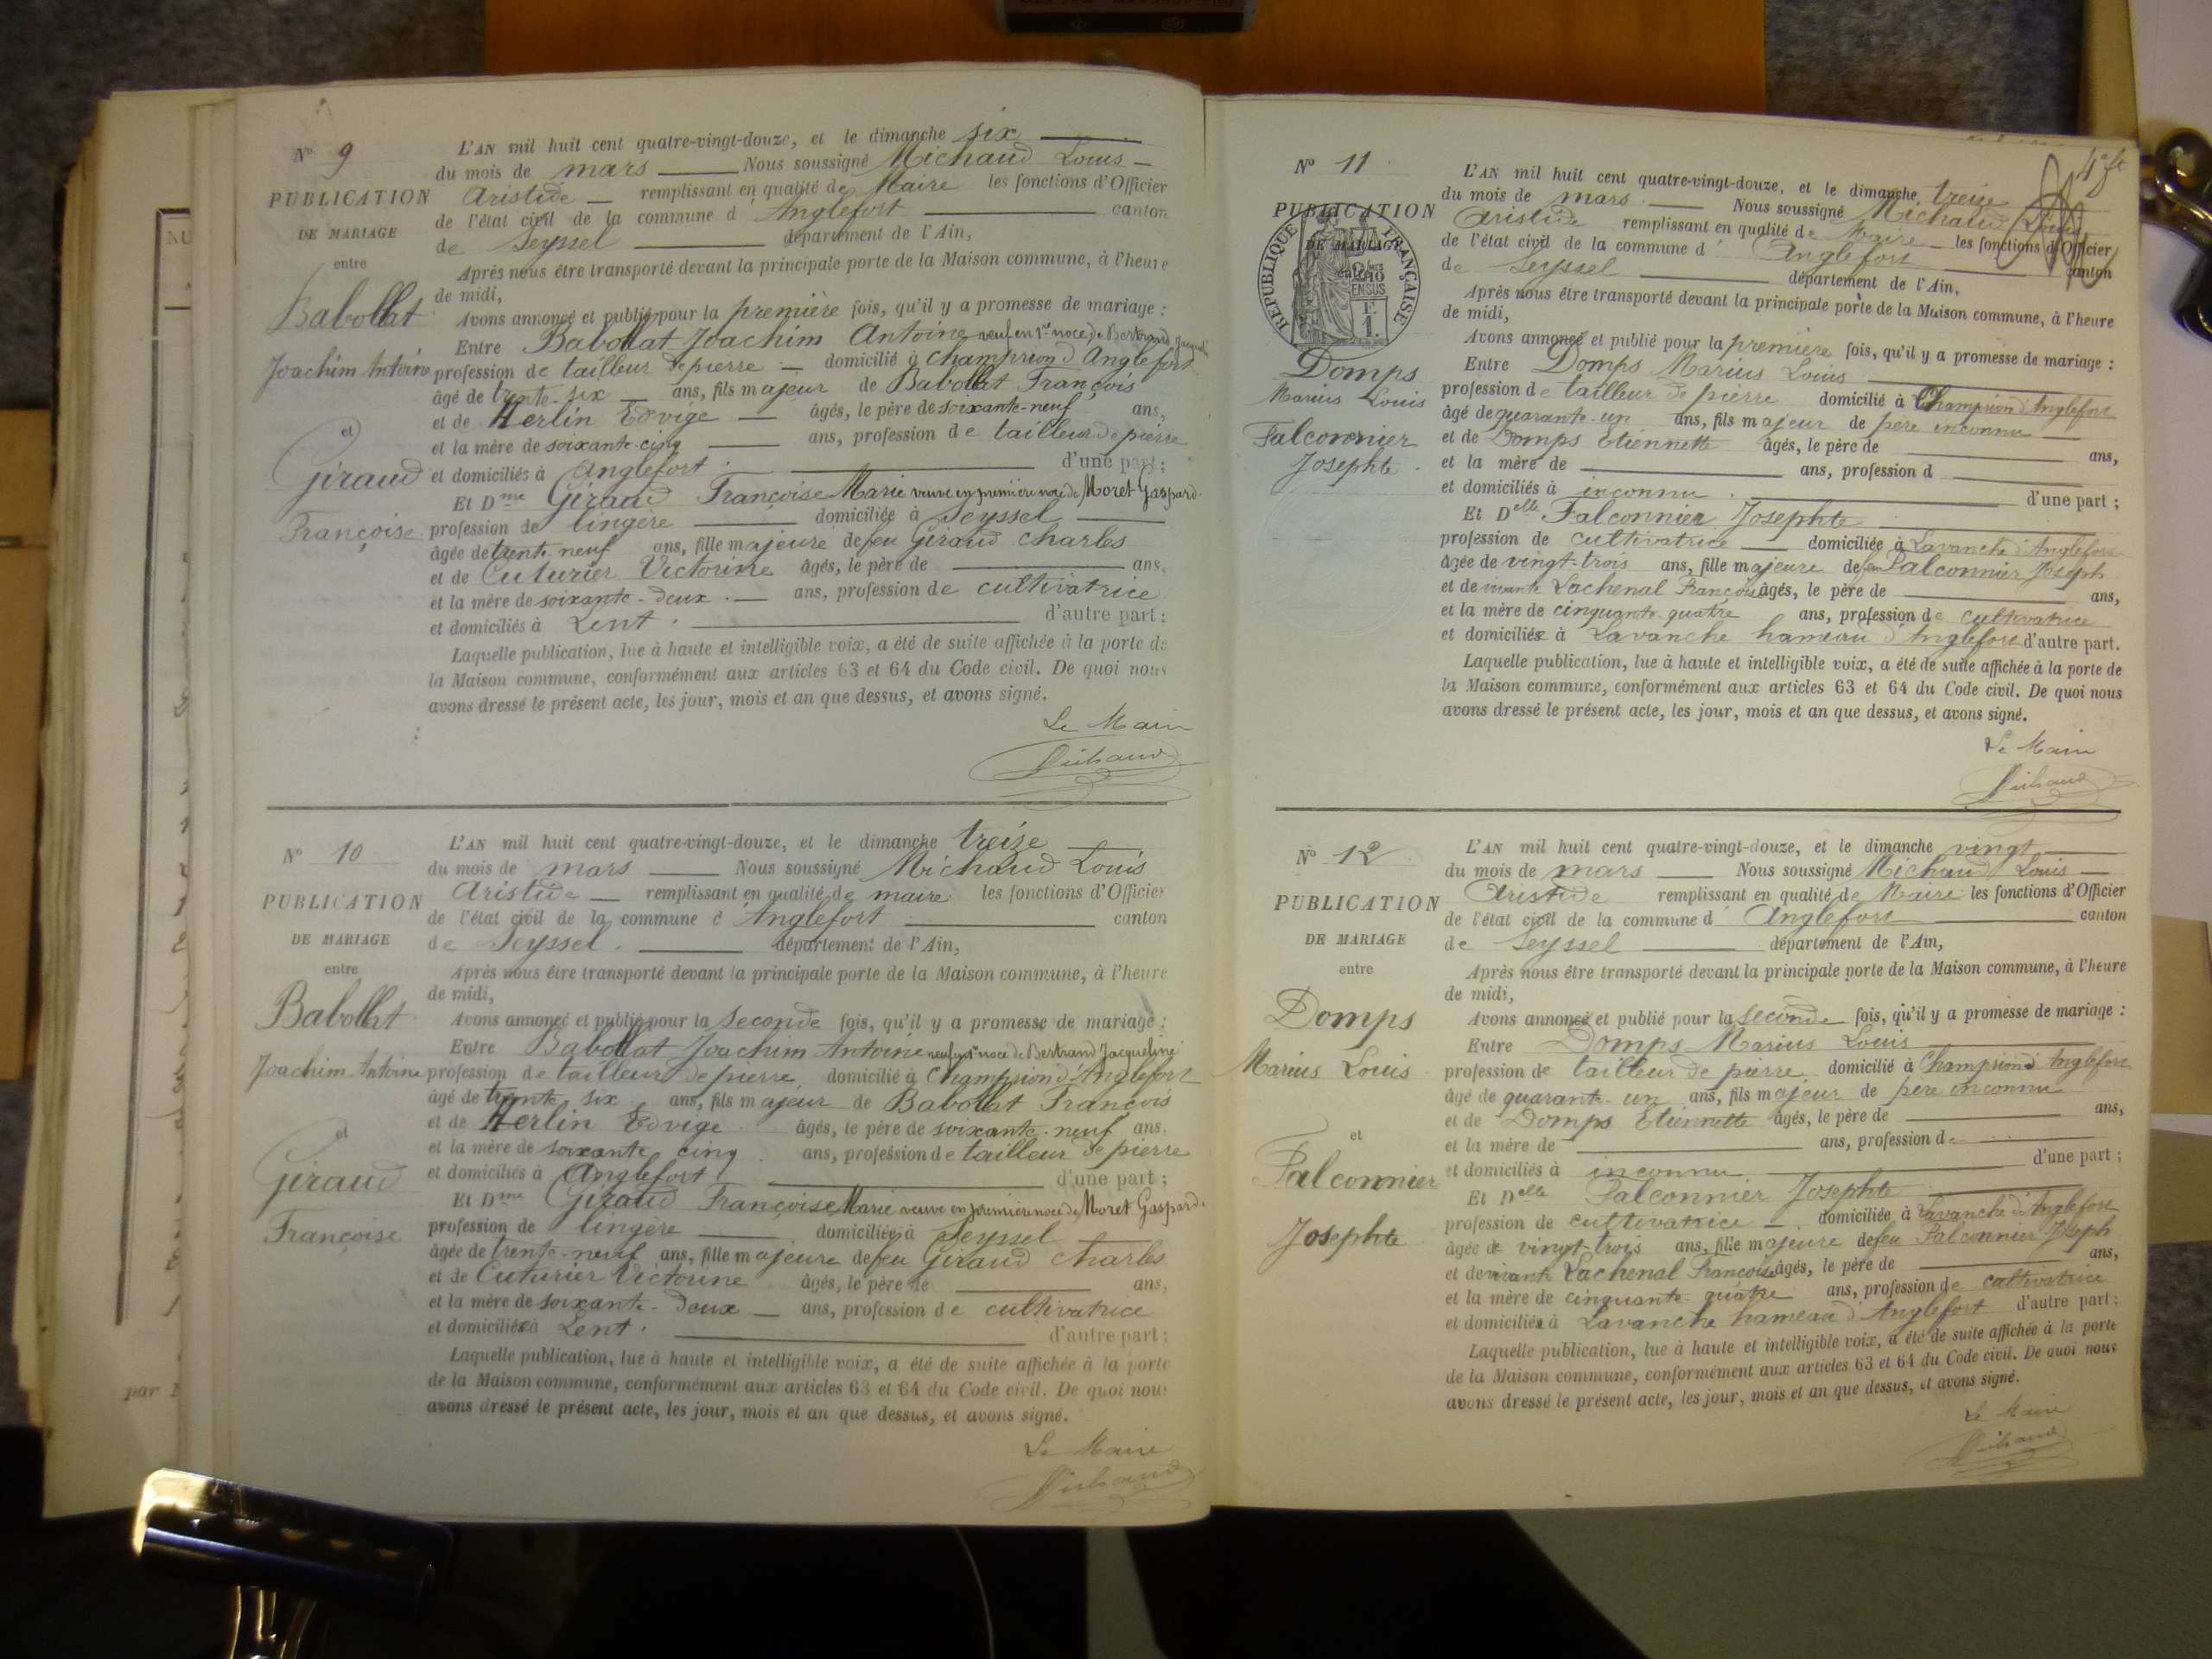 N° 9
PUBLICATION
DE MARIAGE
entre
Babollat
Joachim Antoine
et
Giraud
Françoise
L'AN mil huit cent quatre-vingt-douze, et le dimanche six
du mois de mars Nous soussigné Michaud Louis
Aristide remplissant en qualité de Maire les fonctions d'Officier
de l'état civil de la commune d'Anglefort canton
de Seyssel département de l'Ain,
Après nous être transporté devant la principale porte de la Maison commune, à l'heure
de midi,
Avons annoncé et publié pour la première fois, qu'il y a promesse de mariage :
Entre Babollat Joachim Antoine veuf en 1res noce de Bertrand Jacqueline
profession de tailleur de pierre domicilié à Champriond Anglefort
âgé de trente-six ans, fils majeur de Babollat François
et de Herlin Edvige âgés, le père de soixante-neuf ans,
et la mère de soixante-cinq ans, profession de tailleur de pierre
et domiciliés à Anglefort d'une part ;
Et Dme Giraud Françoise Marie veuve en première noce de Moret Gaspard
profession de lingère domiciliée à Seyssel
âgée de trente-neuf ans, fille majeure de feu Giraud Charles
et de Cuturier Victorine âgés, le père de ans,
et la mère de soixante-deux ans, profession de cultivatrice
et domiciliés à Lent. d'autre part :
Laquelle publication, lue à haute et intelligible voix, a été de suite affichée à la porte de
la Maison commune, conformément aux articles 63 et 64 du Code civil. De quoi nous
avons dressé le présent acte, les jour, mois et an que dessus, et avons signé.
Le Maire
Michaud
N° 10
PUBLICATION
DE MARIAGE
entre
Babollat
Joachim Antoine
et
Giraud
Françoise
L'AN mil huit cent quatre-vingt-douze, et le dimanche treize
du mois de mars Nous soussigné Michaud Louis
Aristide remplissant en qualité de maire les fonctions d'Officier
de l'état civil de la commune d'Anglefort canton
de Seyssel département de l'Ain,
Après nous être transporté devant la principale porte de la Maison commune, à l'heure
de midi,
Avons annoncé et publié pour la seconde fois, qu'il y a promesse de mariage :
Entre Babollat Joachim Antoine noce de Bertrand Jacqueline
profession de tailleur de pierre, domicilié à Champriond d'Anglefort
âgé de trente six ans, fils majeur de Babollat François
et de Herlin Edvige âgés, le père de soixante-neuf ans,
et la mère de soixante cinq ans, profession de tailleur de pierre
et domiciliés à Anglefort d'une part ;
Et Dme Giraud Françoise Marie veuve en première noce de Moret Gaspard.
profession de lingère domiciliée à Seyssel
âgée de trente-neuf ans, fille majeure de feu Giraud Charles
et de Cuturier Victorine âgés, le père de ans,
et la mère de soixante-deux ans, profession de cultivatrice
et domiciliés à Lent. d'autre part ;
Laquelle publication, lue à haute et intelligible voix, a été de suite affichée à la porte
de la Maison commune, conformément aux articles 63 et 64 du Code civil. De quoi nous
avons dressé le présent acte, les jour, mois et an que dessus, et avons signé.
Le Maire
Michaud
par
N° 11
PUBLICATION
DE MARIAGE
RÉPUBLIQUE FRANÇAISE
2/10
EN SUS
F.
1.
Domps
Marius Louis
Falconnier
Josephte
L'AN mil huit cent quatre-vingt-douze, et le dimanche treize
du mois de mars Nous soussigné Michaud Louis
Aristide remplissant en qualité de Maire les fonctions d'Officier
de l'état civil de la commune d'Anglefort canton
de Seyssel département de l'Ain,
Après nous être transporté devant la principale porte de la Maison commune, à l'heure
de midi,
Avons annoncé et publié pour la première fois, qu'il y a promesse de mariage :
Entre Domps Marius Louis
profession de tailleur de pierre domicilié à Champriond Anglefort
âgé de quarante-un ans, fils majeur de père inconnu
et de Domps Etiennette âgés, le père de ans,
et la mère de ans, profession d
et domiciliés à inconnu d'une part ;
Et Delle Falconnier Josephte
profession de cultivatrice domiciliée à Lavanche d'Anglefort
âgée de vingt-trois ans, fille majeure de feu Falconnier Joseph
et de vivante Lachenal Françoise âgés, le père de ans,
et la mère de cinquante-quatre ans, profession de cultivatrice
et domiciliés à Lavanche hameau d'Anglefort d'autre part.
Laquelle publication, lue à haute et intelligible voix, a été de suite affichée à la porte de
la Maison commune, conformément aux articles 63 et 64 du Code civil. De quoi nous
avons dressé le présent acte, les jour, mois et an que dessus, et avons signé.
Le Maire
Michaud
N° 12
PUBLICATION
DE MARIAGE
entre
Domps
Marius Louis
et
Falconnier
Josephte
L'AN mil huit cent quatre-vingt-douze, et le dimanche vingt
du mois de mars Nous soussigné Michaud Louis
Aristide remplissant en qualité de Maire les fonctions d'Officier
de l'état civil de la commune d'Anglefort canton
de Seyssel département de l'Ain,
Après nous être transporté devant la principale porte de la Maison commune, à l'heure
de midi,
Avons annoncé et publié pour la seconde fois, qu'il y a promesse de mariage :
Entre Domps Marius Louis
profession de tailleur de pierre domicilié à Champriond Anglefort
âgé de quarante-un ans, fils majeur de père inconnu
et de Domps Etiennette âgés, le père de ans,
et la mère de ans, profession de
et domiciliés à inconnu d'une part ;
Et Delle Falconnier Josephte
profession de cultivatrice domiciliée à Lavanche d'Anglefort
âgée de vingt-trois ans, fille majeure de feu Falconnier Joseph
et de vivante Lachenal Françoise âgés, le père de ans,
et la mère de cinquante-quatre ans, profession de cultivatrice
et domiciliés à Lavanche hameau d'Anglefort d'autre part ;
Laquelle publication, lue à haute et intelligible voix, a été de suite affichée à la porte
de la Maison commune, conformément aux articles 63 et 64 du Code civil. De quoi nous
avons dressé le présent acte, les jour, mois et an que dessus, et avons signé.
Le Maire
Michaud